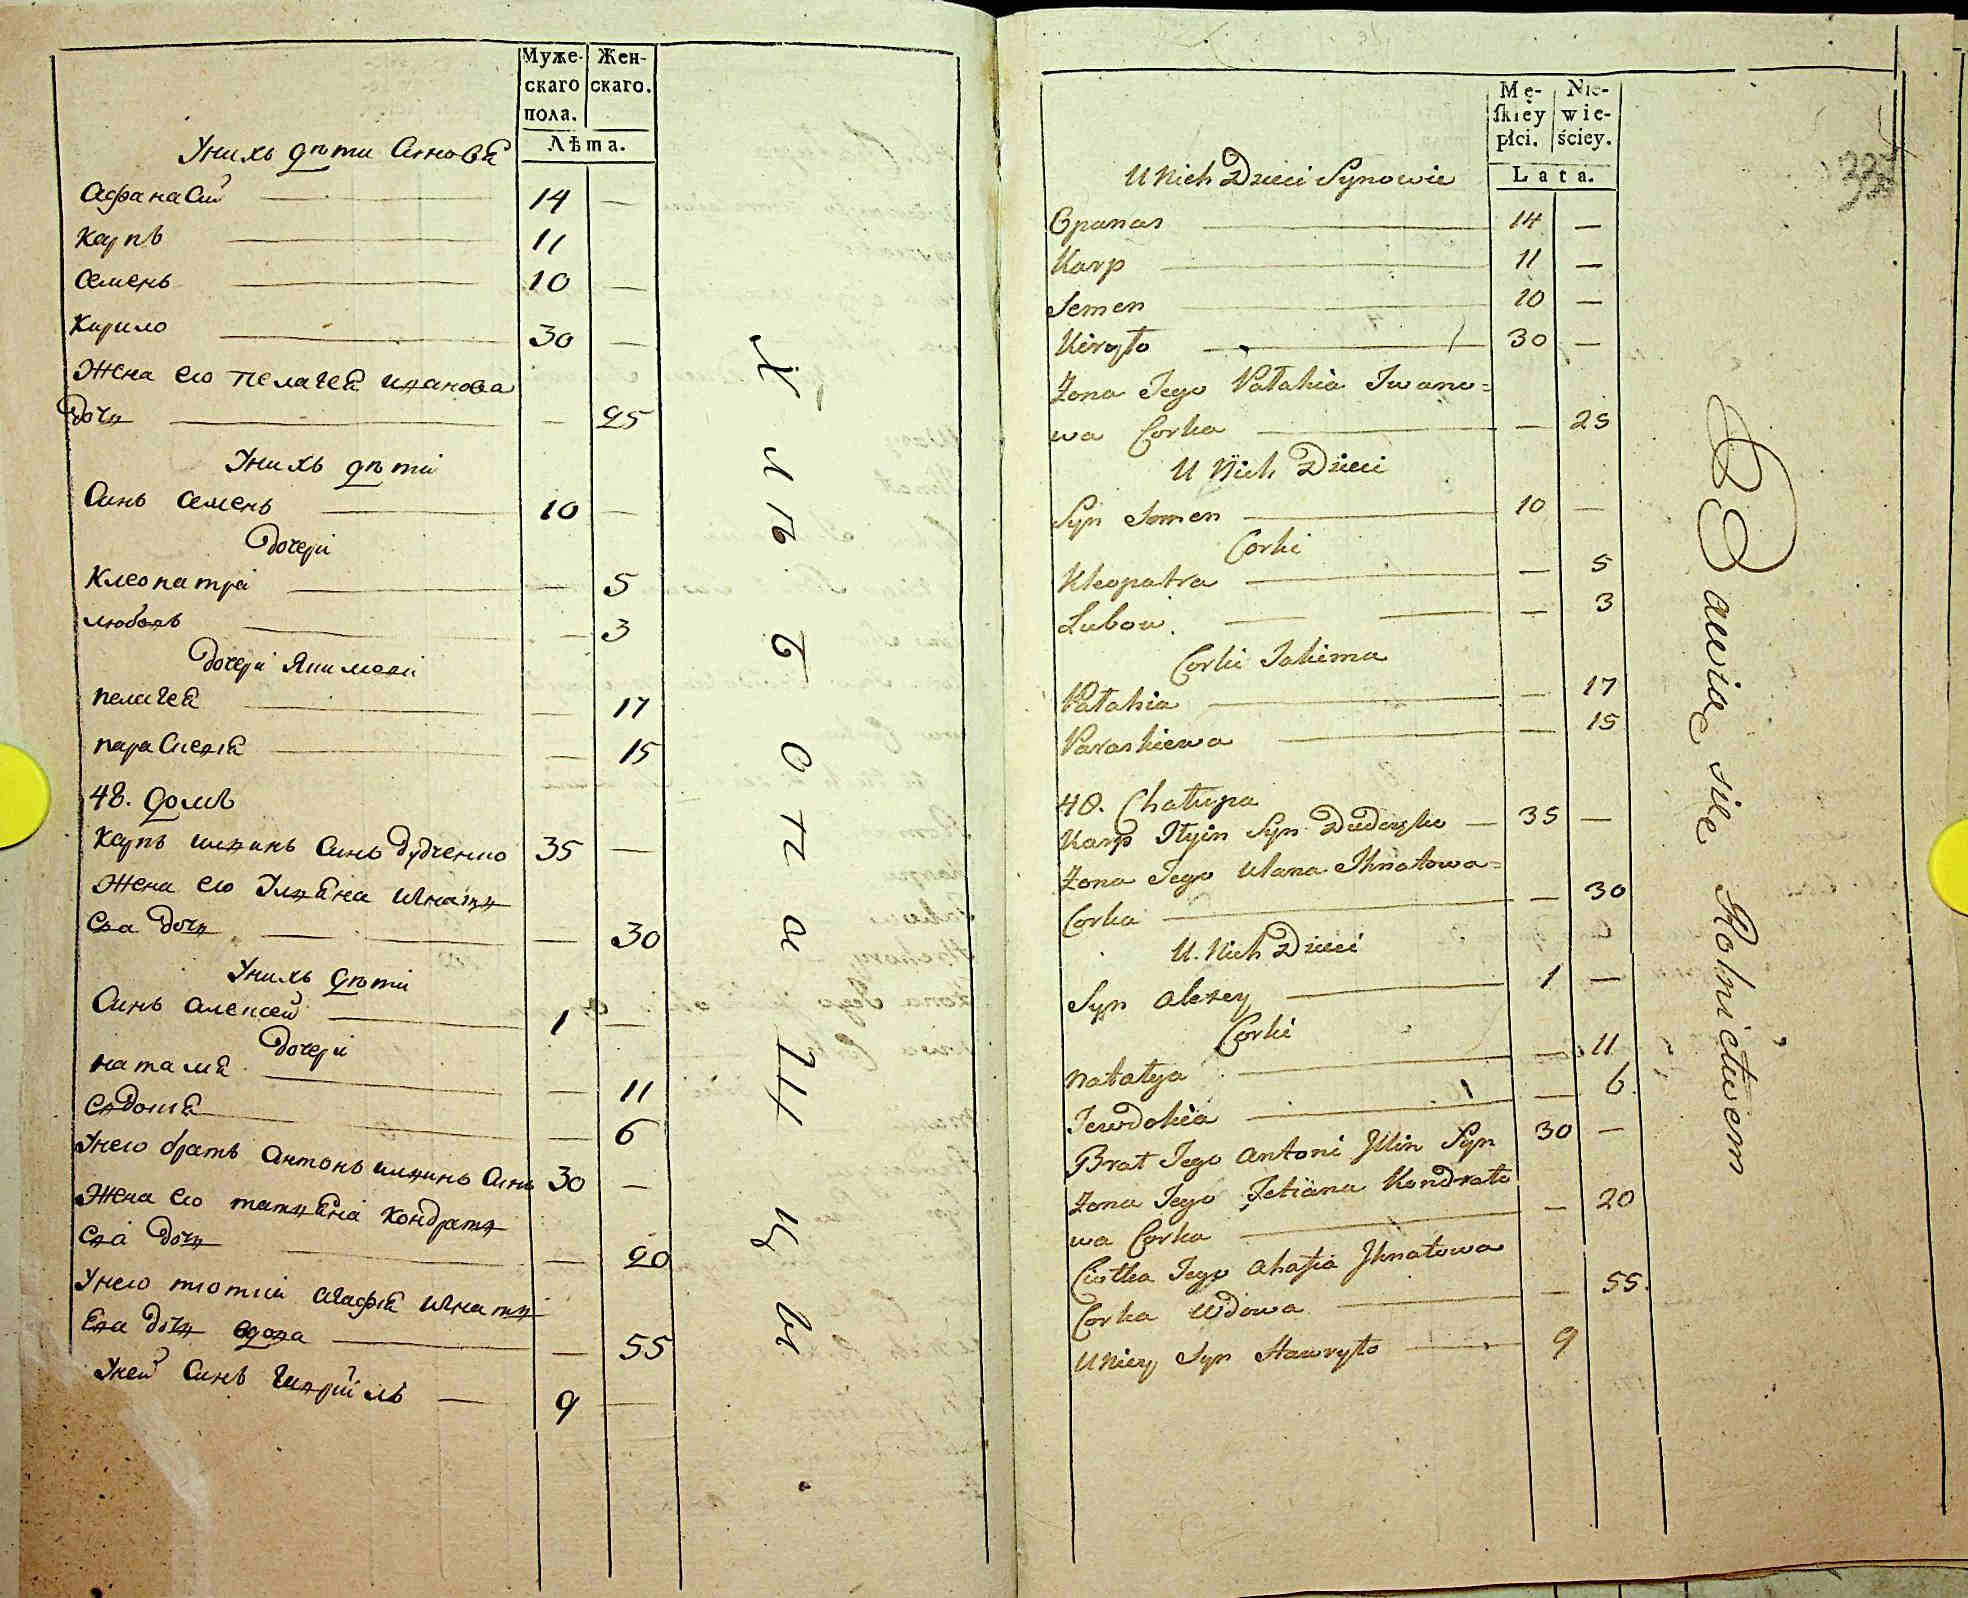 Муже- Жен-
скаго скаго.
пола.
Лѣта.
Унихъ дѣти Синовя
Афанасий — 14 —
Карпъ — 11
Семенъ — 10 —
Кирило — 30 —
Жена его Пелагея иванова
дочь — — 25
Унихъ дѣти
Синъ Семенъ — 10 —
дочери
Клеопатра — — 5
любовь — — 3
дочери Якимови
пелагея — — 17
параскевия — — 15
48. домъ
Карпъ илинъ Синъ дудченко 35 —
Жена его Уляна игнате
ва дочь — — 30
Унихъ дѣти
Синъ алексей — 1 —
дочери
наталия — — 11
евдокия — — 6
Унего братъ антонъ илинъ Синъ 30 —
Жена его татяна Кондрате
ва дочь — — 20
Унего тютка агафия игнате
ва дочь вдова — — 55
Уней Синъ гаврилъ — 9 —
Хлѣбопашцы
Mę- Nie-
ſkiey wie-
płci. ściey.
Lata.
U Nich Dzieci Synowie
Opanas — 14 —
Karp — 11 —
Semen — 10 —
Kiryło — 30 —
Żona Jego Pałahia Iwano=
wa Corka — — 25
U Nich Dzieci
Syn Semen — 10 —
Corki
Kleopatra — — 5
Lubow — — 3
Corki Jakima
Pałahia — — 17
Paraskiewa — — 15
48. Chałupa
Karp Ilyin Syn Dudczenko — 35 —
Żona Jego Ulana Ihnatowa=
Corka — — 30
U Nich Dzieci
Syn Alexey — 1 —
Corki
Natalya — — 11
Jewdokia — — 6
Brat Jego Antoni Ilin Syn 30 —
Żona Jego Tetiana Kondrato
wa Corka — — 20
Ciotka Jego Ahafia Ihnatowa
Corka Wdowa — — 55.
U Niey Syn Hawryło — 9
Bawią się Rolnictwem